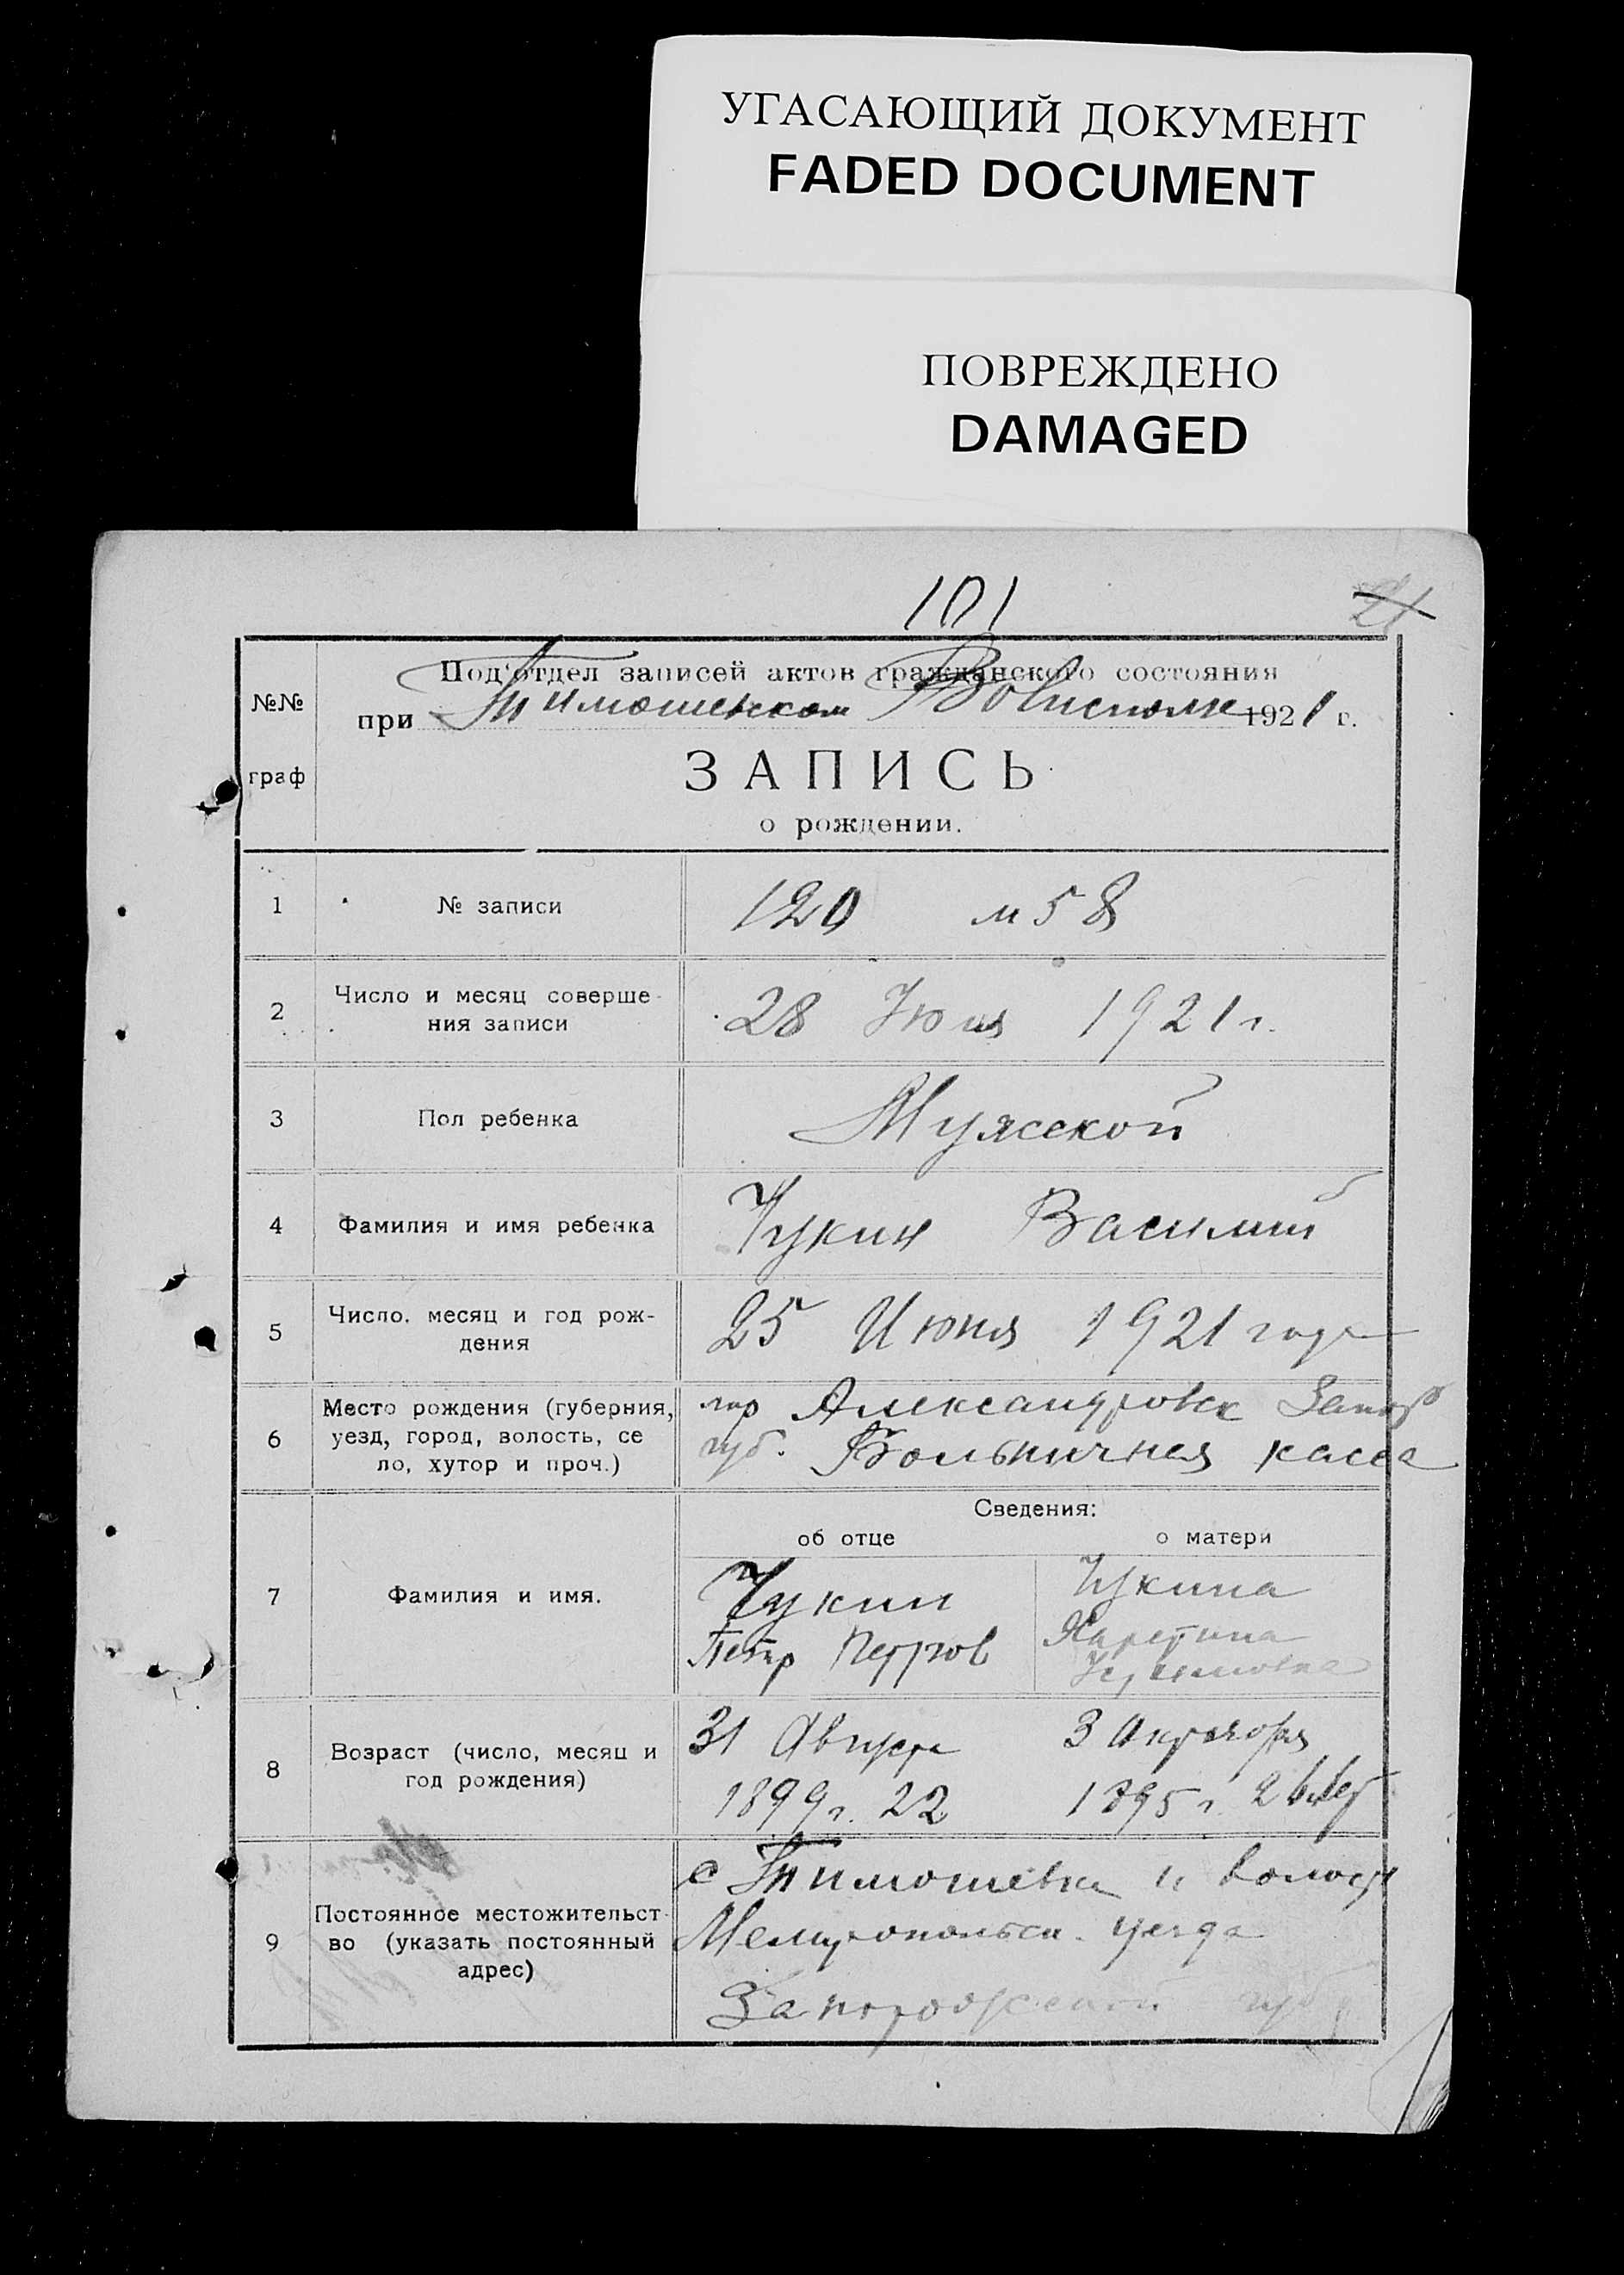 УГАСАЮЩИЙ ДОКУМЕНТ
FADED DOCUMENT
ПОВРЕЖДЕНО
DAMAGED
101
21
Под'отдел записей актов гражданского состояния
№№
при Тимошевском Волисполк 1921 г.
граф
ЗАПИСЬ
о рождении.
1 № записи 120 м 58
2 Число и месяц соверше-
ния записи
28 Июня 1921 г.
3 Пол ребенка Мужской
4 Фамилия и имя ребенка Чукин Василий
5 Число. месяц и год рож-
дения
25 Июня 1921 года
6 Место рождения (губерния,
уезд, город, волость, се
ло, хутор и проч.)
гор Александровск Запор
губ. Больничная касса
Сведения:
об отце о матери
7 Фамилия и имя.
Чукин
Петр Петров
Чукина
8 Возраст (число, месяц и
год рождения)
31 Августа
1899 г. 22
3 Октября
1895 г. 26 лет
9 Постоянное местожительст-
во (указать постоянный
адрес)
с Тимошевка и волост
Мелитопольск. уезда
Запорожской губ